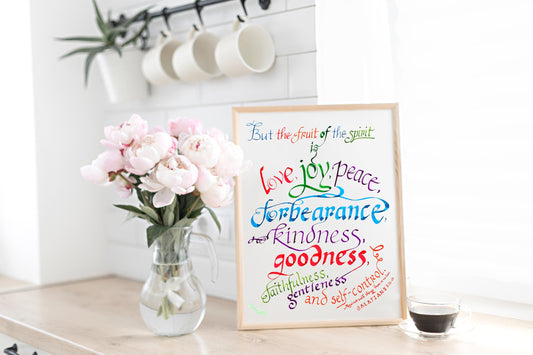 But the fruit of the spirit
is
love, joy, peace,
forbearance,
kindness,
goodness,
faithfulness,
gentleness
and self-control.